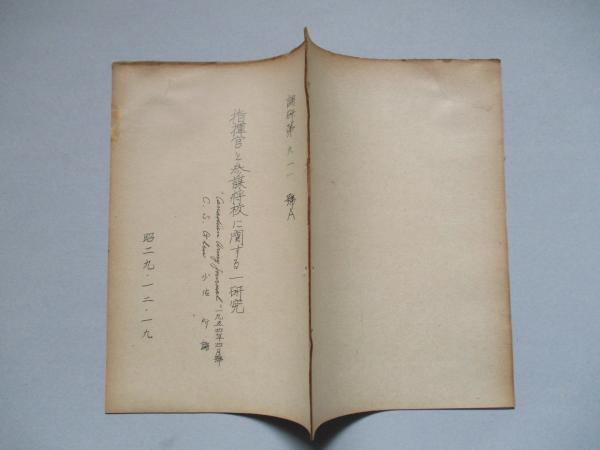 調研第九一一號A
指揮官と参謀将校に関する一研究
"Canadian Army Journal" 一九五四年四月號
C. S. 少佐 訳
昭二九・一二・一九